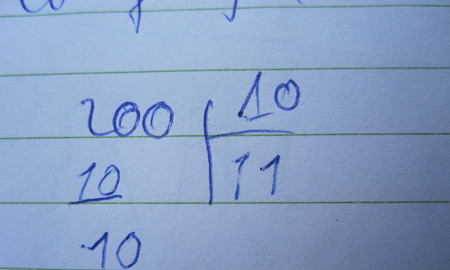 200 10
10 11
10